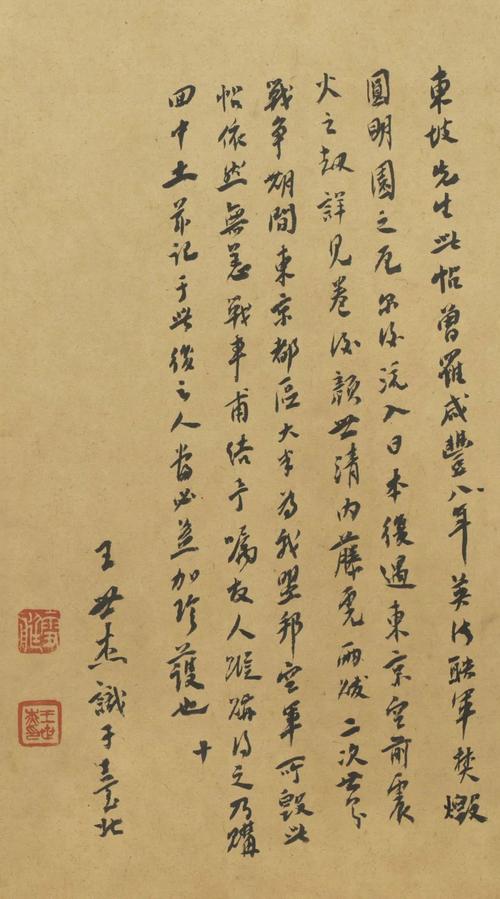 東坡先生此帖曾罹咸豐八年英法聯軍焚燬
圓明園之厄爾後流入日本復遇東京空前震
火之劫詳見卷後顏世清內藤虎兩跋二次世界
戰爭期間東京都區大半為我盟邦空軍所毀此
帖依然無恙戰事甫結予囑友人蹤蹟得之乃購
回中土並記于此後之人當必益加珍護也 十
王世杰識于臺北
雪艇
王世杰印